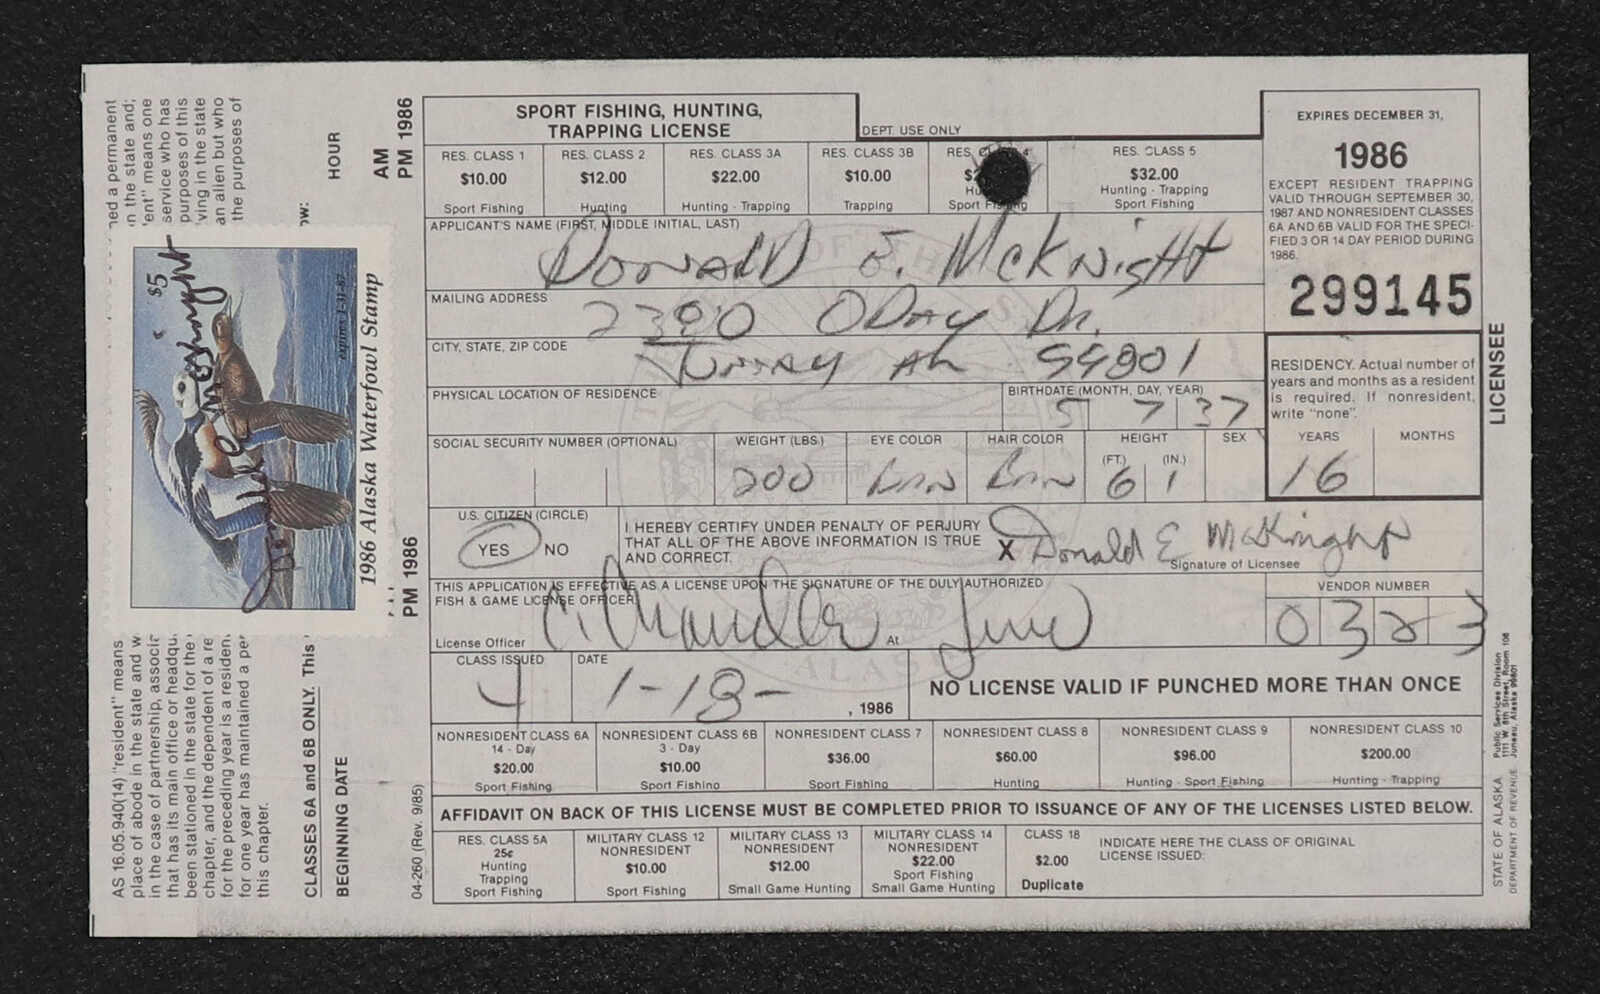 SPORT FISHING, HUNTING,
TRAPPING LICENSE
DEPT. USE ONLY
EXPIRES DECEMBER 31,
1986
EXCEPT RESIDENT TRAPPING
VALID THROUGH SEPTEMBER 30,
1987 AND NONRESIDENT CLASSES
6A AND 6B VALID FOR THE SPECI-
FIED 3 OR 14 DAY PERIOD DURING
1986.
299145
RES. CLASS 1 RES. CLASS 2 RES. CLASS 3A RES. CLASS 3B RES. RES. CLASS 5
$10.00 $12.00 $22.00 $10.00 $32.00
Sport Fishing Hunting Hunting - Trapping Trapping Sport Fishing Hunting - Trapping
Sport Fishing
APPLICANT'S NAME (FIRST, MIDDLE INITIAL, LAST)
Donald E. McKnight
MAILING ADDRESS
2390 ODAY Dr.
CITY, STATE, ZIP CODE
AK 99801
PHYSICAL LOCATION OF RESIDENCE
BIRTHDATE (MONTH, DAY, YEAR)
5 7 37
RESIDENCY. Actual number of
years and months as a resident
is required. If nonresident,
write "none".
YEARS MONTHS
16
SOCIAL SECURITY NUMBER (OPTIONAL) WEIGHT (LBS.) EYE COLOR HAIR COLOR HEIGHT SEX
(FT.) (IN.)
200 BRN BRN 6 1
U.S. CITIZEN (CIRCLE)
YES NO
I HEREBY CERTIFY UNDER PENALTY OF PERJURY
THAT ALL OF THE ABOVE INFORMATION IS TRUE
AND CORRECT.
X Donald E McKnight
Signature of Licensee
THIS APPLICATION IS EFFECTIVE AS A LICENSE UPON THE SIGNATURE OF THE DULY AUTHORIZED
FISH & GAME LICENSE OFFICER.
VENDOR NUMBER
0323
License Officer C. Chandler At
CLASS ISSUED DATE
4 1-18- , 1986
NO LICENSE VALID IF PUNCHED MORE THAN ONCE
NONRESIDENT CLASS 6A NONRESIDENT CLASS 6B NONRESIDENT CLASS 7 NONRESIDENT CLASS 8 NONRESIDENT CLASS 9 NONRESIDENT CLASS 10
14 - Day 3 - Day
$20.00 $10.00 $36.00 $60.00 $96.00 $200.00
Sport Fishing Sport Fishing Sport Fishing Hunting Hunting - Sport Fishing Hunting - Trapping
AFFIDAVIT ON BACK OF THIS LICENSE MUST BE COMPLETED PRIOR TO ISSUANCE OF ANY OF THE LICENSES LISTED BELOW.
RES. CLASS 5A MILITARY CLASS 12 MILITARY CLASS 13 MILITARY CLASS 14 CLASS 18
NONRESIDENT NONRESIDENT NONRESIDENT
25¢ $10.00 $12.00 $22.00 $2.00
Hunting
Trapping
Sport Fishing
Sport Fishing
Small Game Hunting
Sport Fishing
Small Game Hunting
Duplicate
INDICATE HERE THE CLASS OF ORIGINAL
LICENSE ISSUED:
LICENSEE
STATE OF ALASKA
DEPARTMENT OF REVENUE
Public Services Division
1111 W 8th Street, Room 108
Juneau, Alaska 99801
AS 16.05.940(14) "resident" means
place of abode in the state and
in the case of partnership,
that has its main office or
been stationed in the state for the
chapter, and the dependent of a
for the preceding year is a
for one year has maintained a
this chapter.
a permanent
in the state and;
means one
service who has
purposes of this
in the state
an alien but who
the purposes of
CLASSES 6A and 6B ONLY. This
BEGINNING DATE
HOUR
AM
PM 1986
PM 1986
04-260 (Rev. 9/85)
$5
expires 1-31-87
1986 Alaska Waterfowl Stamp